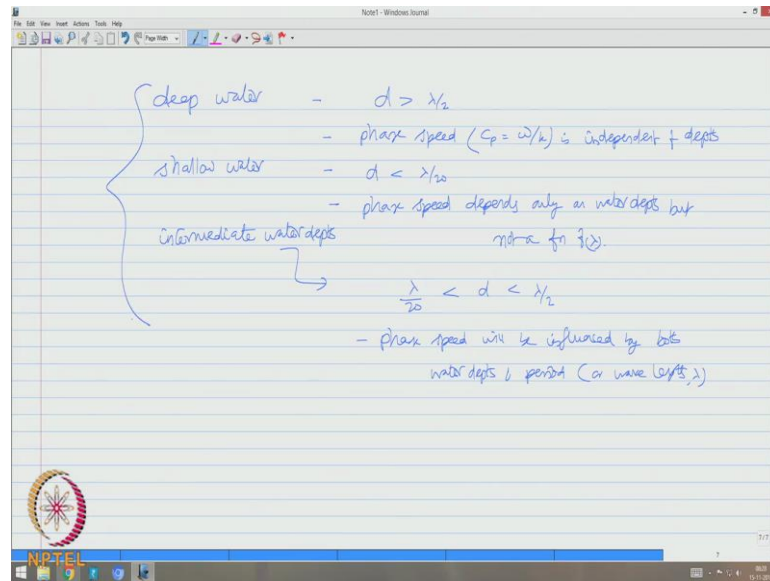 Note1 - Windows Journal
File Edit View Insert Actions Tools Help
Page Width
deep water - d > λ/2
- phase speed (Cp = ω/k) is independent of depth
shallow water - d < λ/20
- phase speed depends only on water depth but
not a fn f(λ).
intermediate water depth
λ/20 < d < λ/2
- phase speed will be influenced by both
water depth & period (or wave length, λ)
7/7
NPTEL